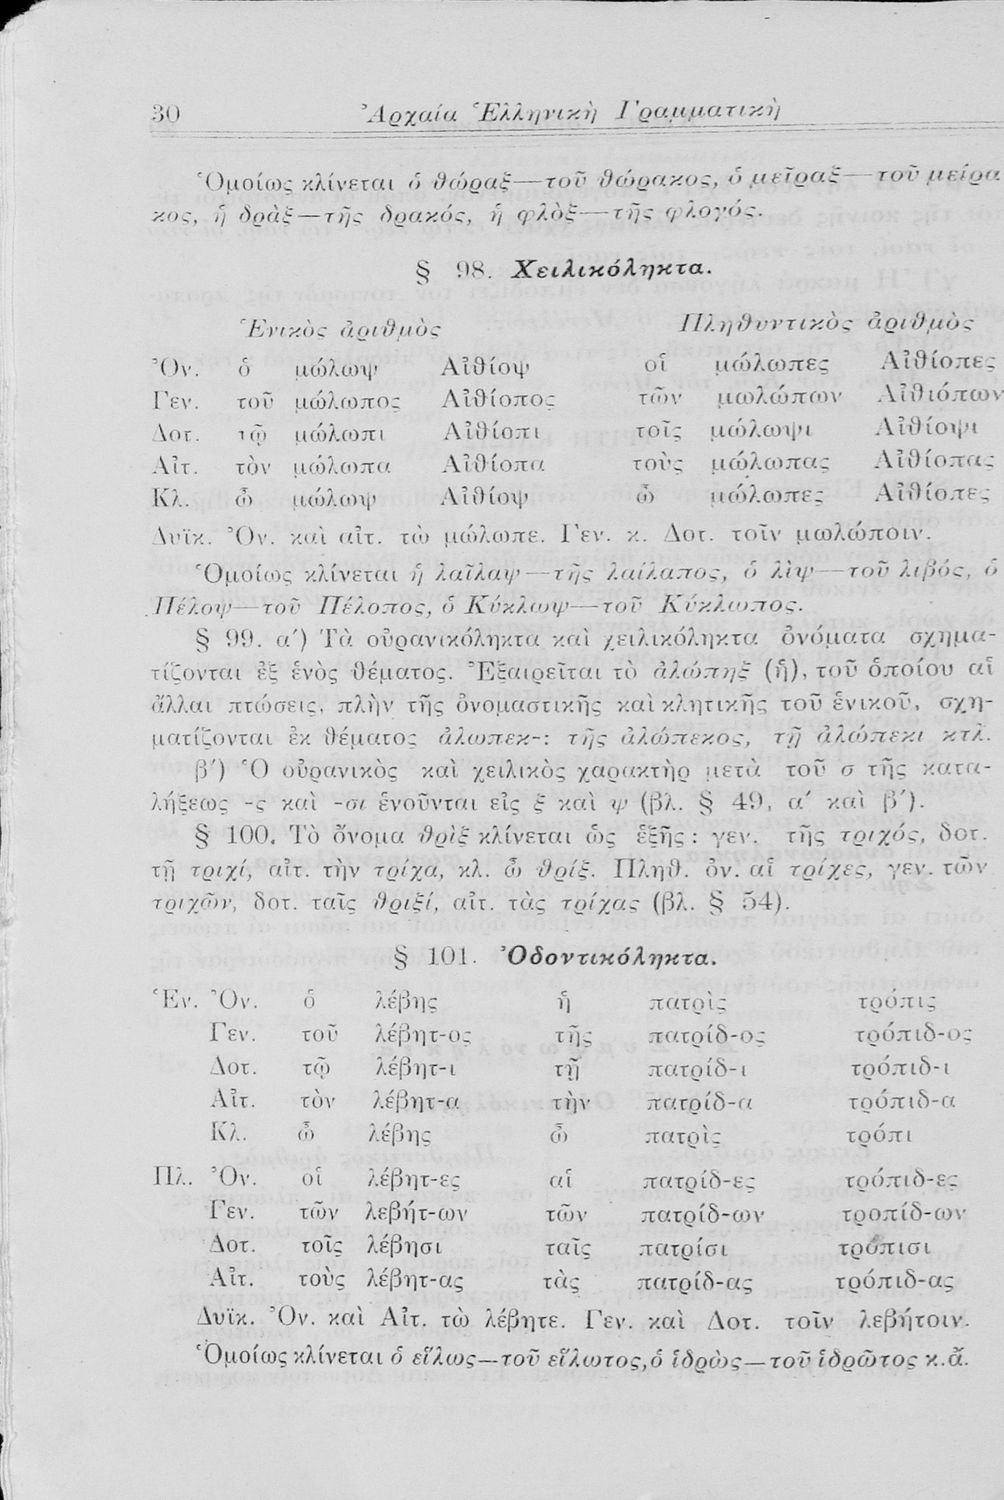 30 Ἀρχαία Ἑλληνικὴ Γραμματικὴ
Ὁμοίως κλίνεται ὁ θώραξ—τοῦ θώρακος, ὁ μεῖραξ—τοῦ μείρα
κος, ἡ δρὰξ—τῆς δρακός, ἡ φλὸξ—τῆς φλογός.
§ 98. Χειλικόληκτα.
Ἑνικὸς ἀριθμὸς Πληθυντικὸς ἀριθμὸς
Ὀν. ὁ μώλωψ Αἰθίοψ οἱ μώλωπες Αἰθίοπες
Γεν. τοῦ μώλωπος Αἰθίοπος τῶν μωλώπων Αἰθιόπων
Δοτ. τῷ μώλωπι Αἰθίοπι τοῖς μώλωψι Αἰθίοψι
Αἰτ. τὸν μώλωπα Αἰθίοπα τοὺς μώλωπας Αἰθίοπας
Κλ. ὦ μώλωψ Αἰθίοψ ὦ μώλωπες Αἰθίοπες
Δυϊκ. Ὀν. καὶ αἰτ. τὼ μώλωπε. Γεν. κ. Δοτ. τοῖν μωλώποιν.
Ὁμοίως κλίνεται ἡ λαῖλαψ—τῆς λαίλαπος, ὁ λὶψ—τοῦ λιβός, ὁ
Πέλοψ—τοῦ Πέλοπος, ὁ Κύκλωψ—τοῦ Κύκλωπος.
§ 99. α') Τὰ οὐρανικόληκτα καὶ χειλικόληκτα ὀνόματα σχημα-
τίζονται ἐξ ἑνὸς θέματος. Ἐξαιρεῖται τὸ ἀλώπηξ (ἡ), τοῦ ὁποίου αἱ
ἄλλαι πτώσεις, πλὴν τῆς ὀνομαστικῆς καὶ κλητικῆς τοῦ ἑνικοῦ, σχη-
ματίζονται ἐκ θέματος ἀλωπεκ-: τῆς ἀλώπεκος, τῇ ἀλώπεκι κτλ.
β') Ὁ οὐρανικὸς καὶ χειλικὸς χαρακτὴρ μετὰ τοῦ σ τῆς κατα-
λήξεως -ς καὶ -σι ἑνοῦνται εἰς ξ καὶ ψ (βλ. § 49, α' καὶ β').
§ 100. Τὸ ὄνομα θρὶξ κλίνεται ὡς ἑξῆς: γεν. τῆς τριχός, δοτ.
τῇ τριχί, αἰτ. τὴν τρίχα, κλ. ὦ θρίξ. Πληθ. ὀν. αἱ τρίχες, γεν. τῶν
τριχῶν, δοτ. ταῖς θριξί, αἰτ. τὰς τρίχας (βλ. § 54).
§ 101. Ὀδοντικόληκτα.
Ἑν. Ὀν. ὁ λέβης ἡ πατρὶς τρόπις
Γεν. τοῦ λέβητ-ος τῆς πατρίδ-ος τρόπιδ-ος
Δοτ. τῷ λέβητ-ι τῇ πατρίδ-ι τρόπιδ-ι
Αἰτ. τὸν λέβητ-α τὴν πατρίδ-α τρόπιδ-α
Κλ. ὦ λέβης ὦ πατρὶς τρόπι
Πλ. Ὀν. οἱ λέβητ-ες αἱ πατρίδ-ες τρόπιδ-ες
Γεν. τῶν λεβήτ-ων τῶν πατρίδ-ων τροπίδ-ων
Δοτ. τοῖς λέβησι ταῖς πατρίσι τρόπισι
Αἰτ. τοὺς λέβητ-ας τὰς πατρίδ-ας τρόπιδ-ας
Δυϊκ. Ὀν. καὶ Αἰτ. τὼ λέβητε. Γεν. καὶ Δοτ. τοῖν λεβήτοιν.
Ὁμοίως κλίνεται ὁ εἵλως—τοῦ εἵλωτος, ὁ ἱδρὼς—τοῦ ἱδρῶτος κ.ἄ.